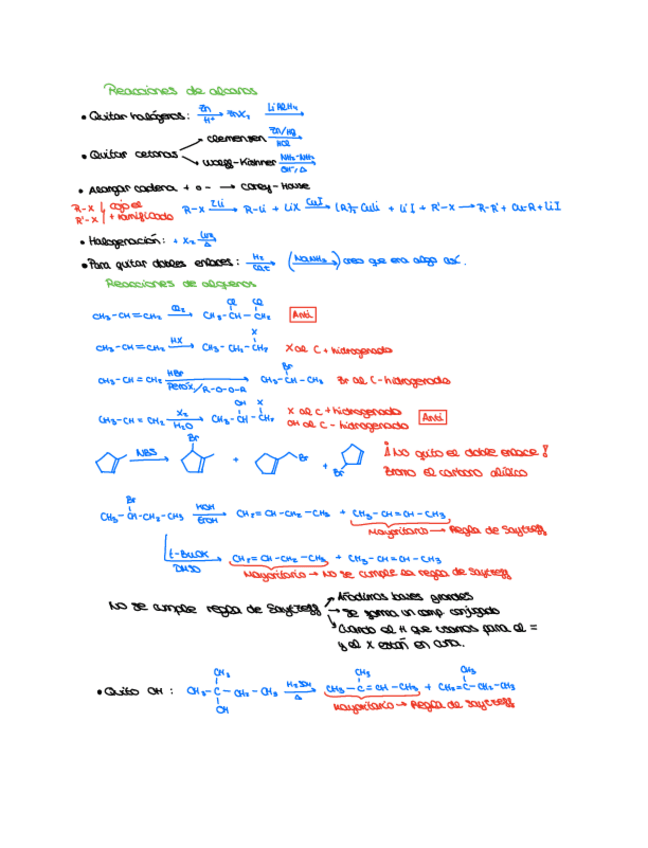 Reacciones de alcanos
• Quitar halógenos: Zn/H⁺ → ZnX₂ LiAlH₄ →
• Quitar cetonas → Clemensen Zn/Hg HCl →
→ Wolff-Kishner NH₂-NH₂ OH⁻, Δ →
• Alargar cadena + o - → Corey-House
R-X R'-X cojo el + ramificado R-X 2Li → R-Li + LiX CuI → (R)₂ CuLi + LiI + R'-X → R-R' + Cu-R + LiI
• Halogenación: + X₂ Luz Δ →
• Para quitar dobles enlaces: H₂ Cat → (NaNH₂ →) creo que era algo así.
Reacciones de alquenos
CH₃-CH=CH₂ Cl₂ → CH₃-CH-CH₂ Cl Cl Anti
CH₃-CH=CH₂ HX → CH₃-CH₂-CH₂ X X al C + hidrogenado
CH₃-CH=CH₂ HBr Peróx/R-O-O-R → CH₃-CH-CH₃ Br Br al C - hidrogenado
CH₃-CH=CH₂ X₂ H₂O → CH₃-CH-CH₂ OH X X al C + hidrogenado OH al C - hidrogenado Anti
NBS → Br + Br + Br ¡No quito el doble enlace!
Bromo el carbono alílico
CH₃-CH-CH₂-CH₃ Br KOH EtOH → CH₂=CH-CH₂-CH₃ + CH₃-CH=CH-CH₃
Mayoritario → Regla de Saytzeff
t-BuOK DMSO → CH₂=CH-CH₂-CH₃ + CH₃-CH=CH-CH₃
Mayoritario → No se cumple la regla de Saytzeff
No se cumple regla de Saytzeff → Añadimos bases grandes
→ Se forma un comp conjugado
→ Cuando el H que usamos para el =
y el X están en
• Quito OH: CH₃-C-CH₂-CH₃ CH₃ OH H₂SO₄ Δ → CH₃-C=CH-CH₃ CH₃ + CH₂=C-CH₂-CH₃ CH₃
Mayoritario → Regla de Saytzeff